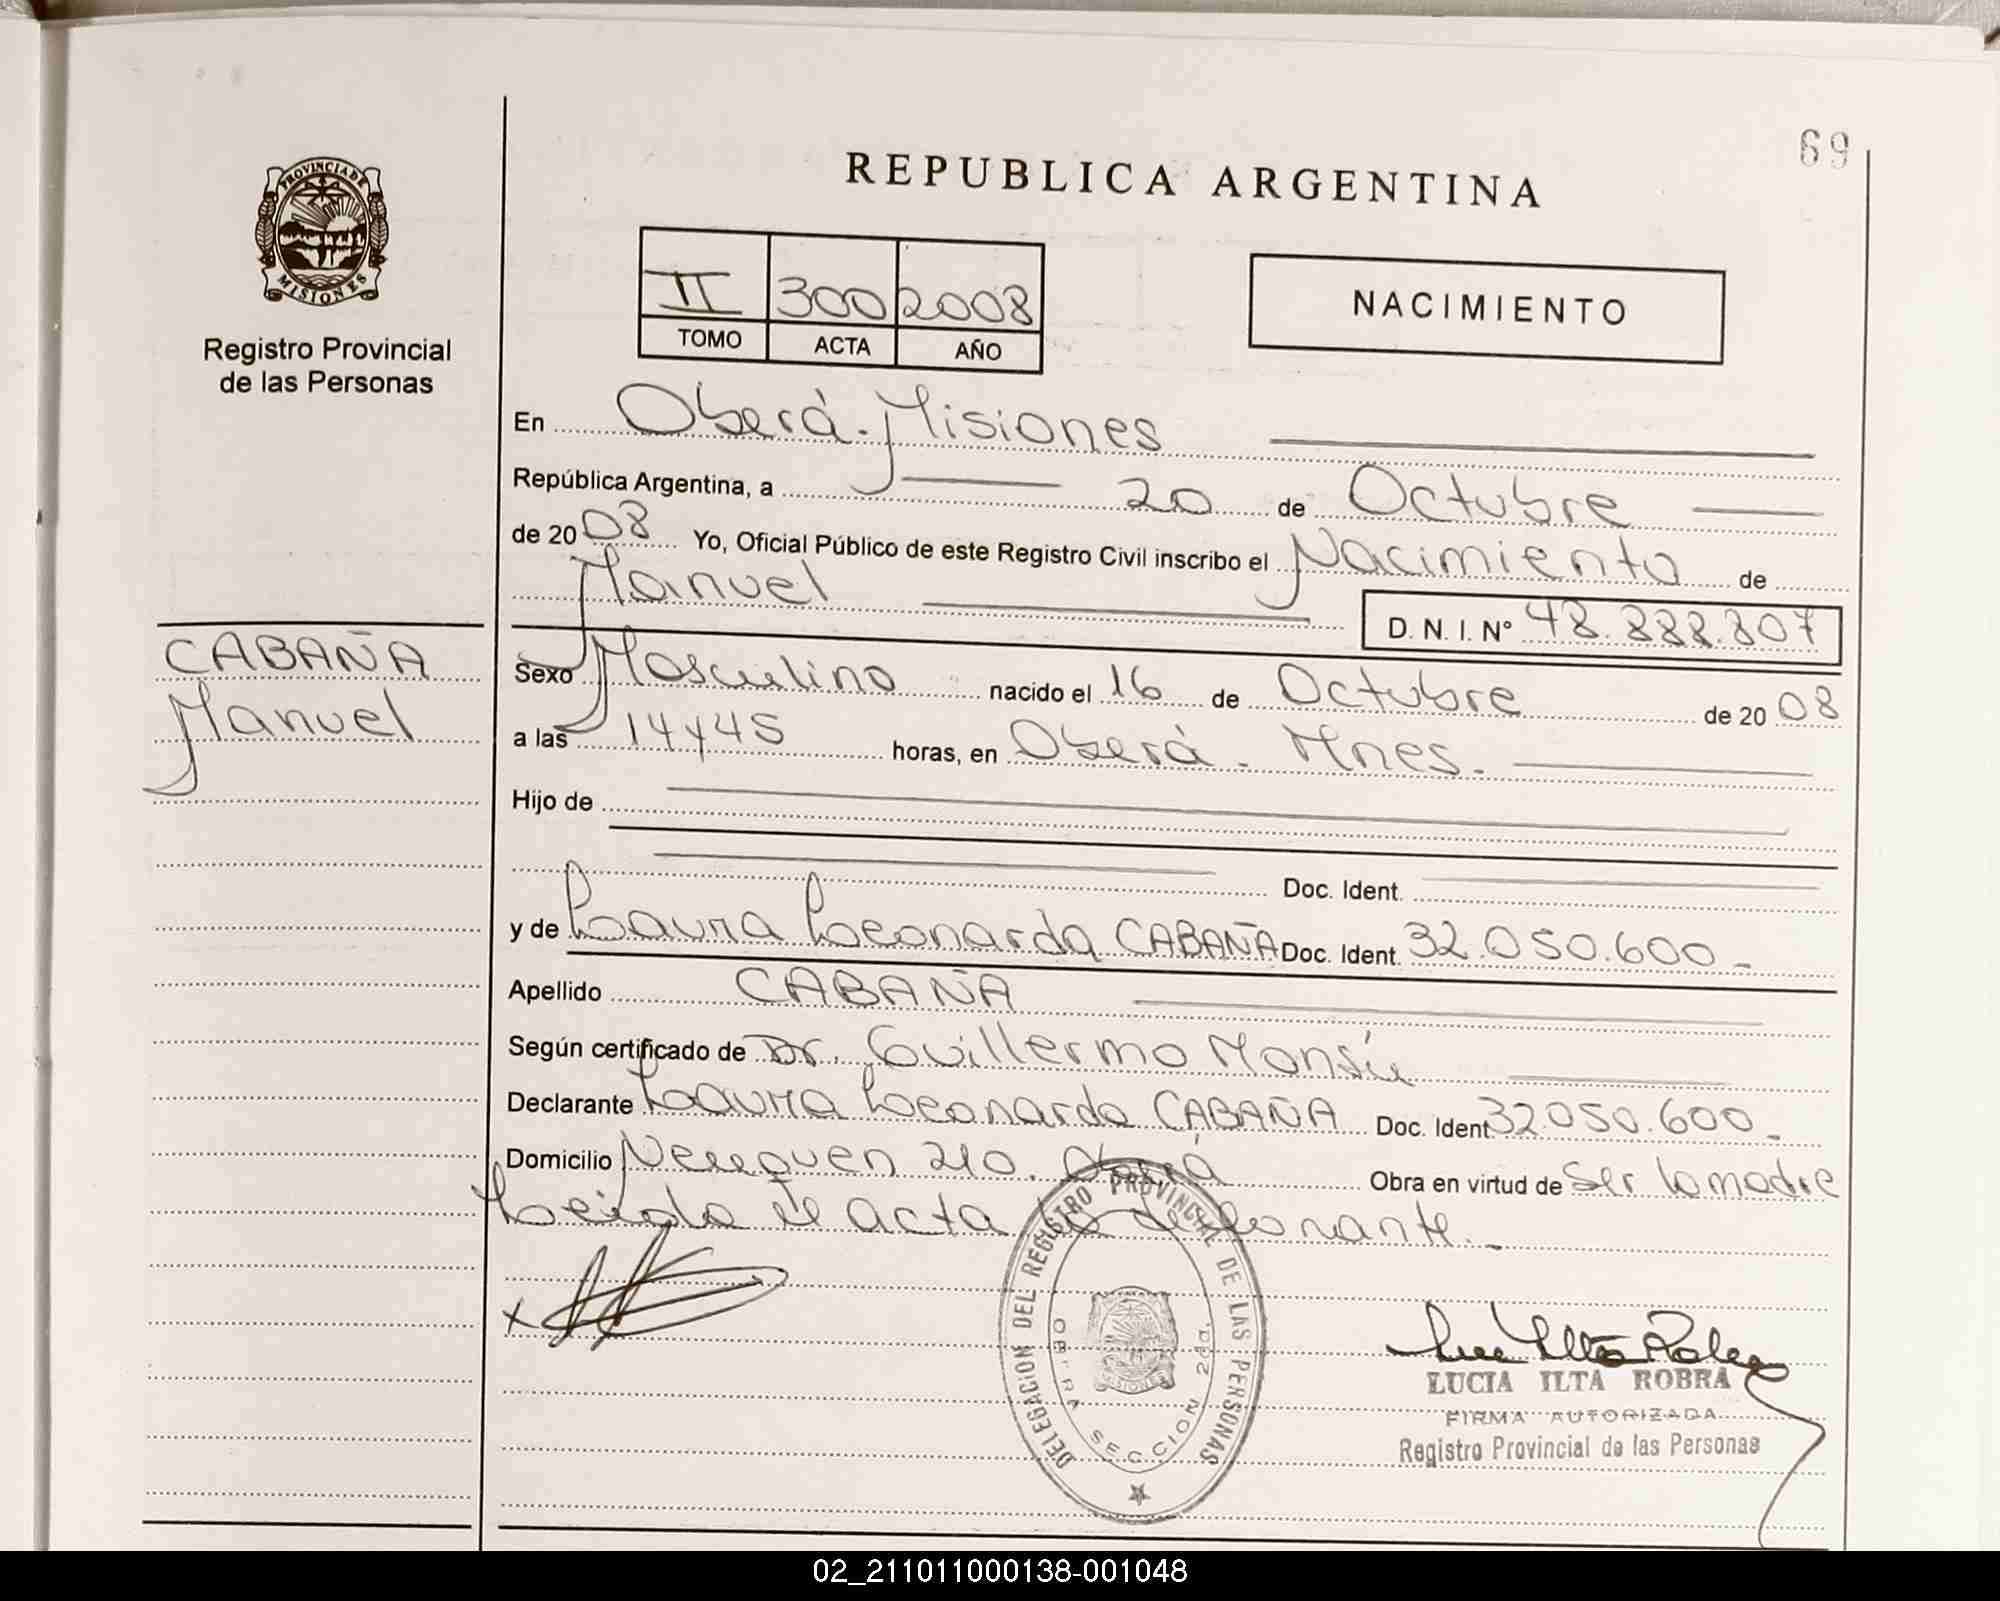 69
REPUBLICA ARGENTINA
PROVINCIA DE
MISIONES
Registro Provincial
de las Personas
II 300 2008
TOMO ACTA AÑO
NACIMIENTO
En Oberá. Misiones
República Argentina, a 20 de Octubre
de 2008 Yo, Oficial Público de este Registro Civil inscribo el Nacimiento de
Manuel
D. N. I. N° 48.888.807
CABAÑA
Manuel
Sexo Masculino nacido el 16 de Octubre de 2008
a las 14y45 horas, en Oberá. Mnes.
Hijo de
Doc. Ident.
y de Laura Leonarda CABAÑA Doc. Ident. 32.050.600_
Apellido CABAÑA
Según certificado de Dr. Guillermo
Declarante Laura Leonarda CABAÑA Doc. Ident 32.050.600_
Domicilio 210. Oberá Obra en virtud de ser la madre
Leída el acta
DELEGACION DEL REGISTRO PROVINCIAL DE LAS PERSONAS
OBERA SECCION 2da.
MISIONES
LUCIA ILTA ROBRA
FIRMA AUTORIZADA
Registro Provincial de las Personas
02_211011000138-001048